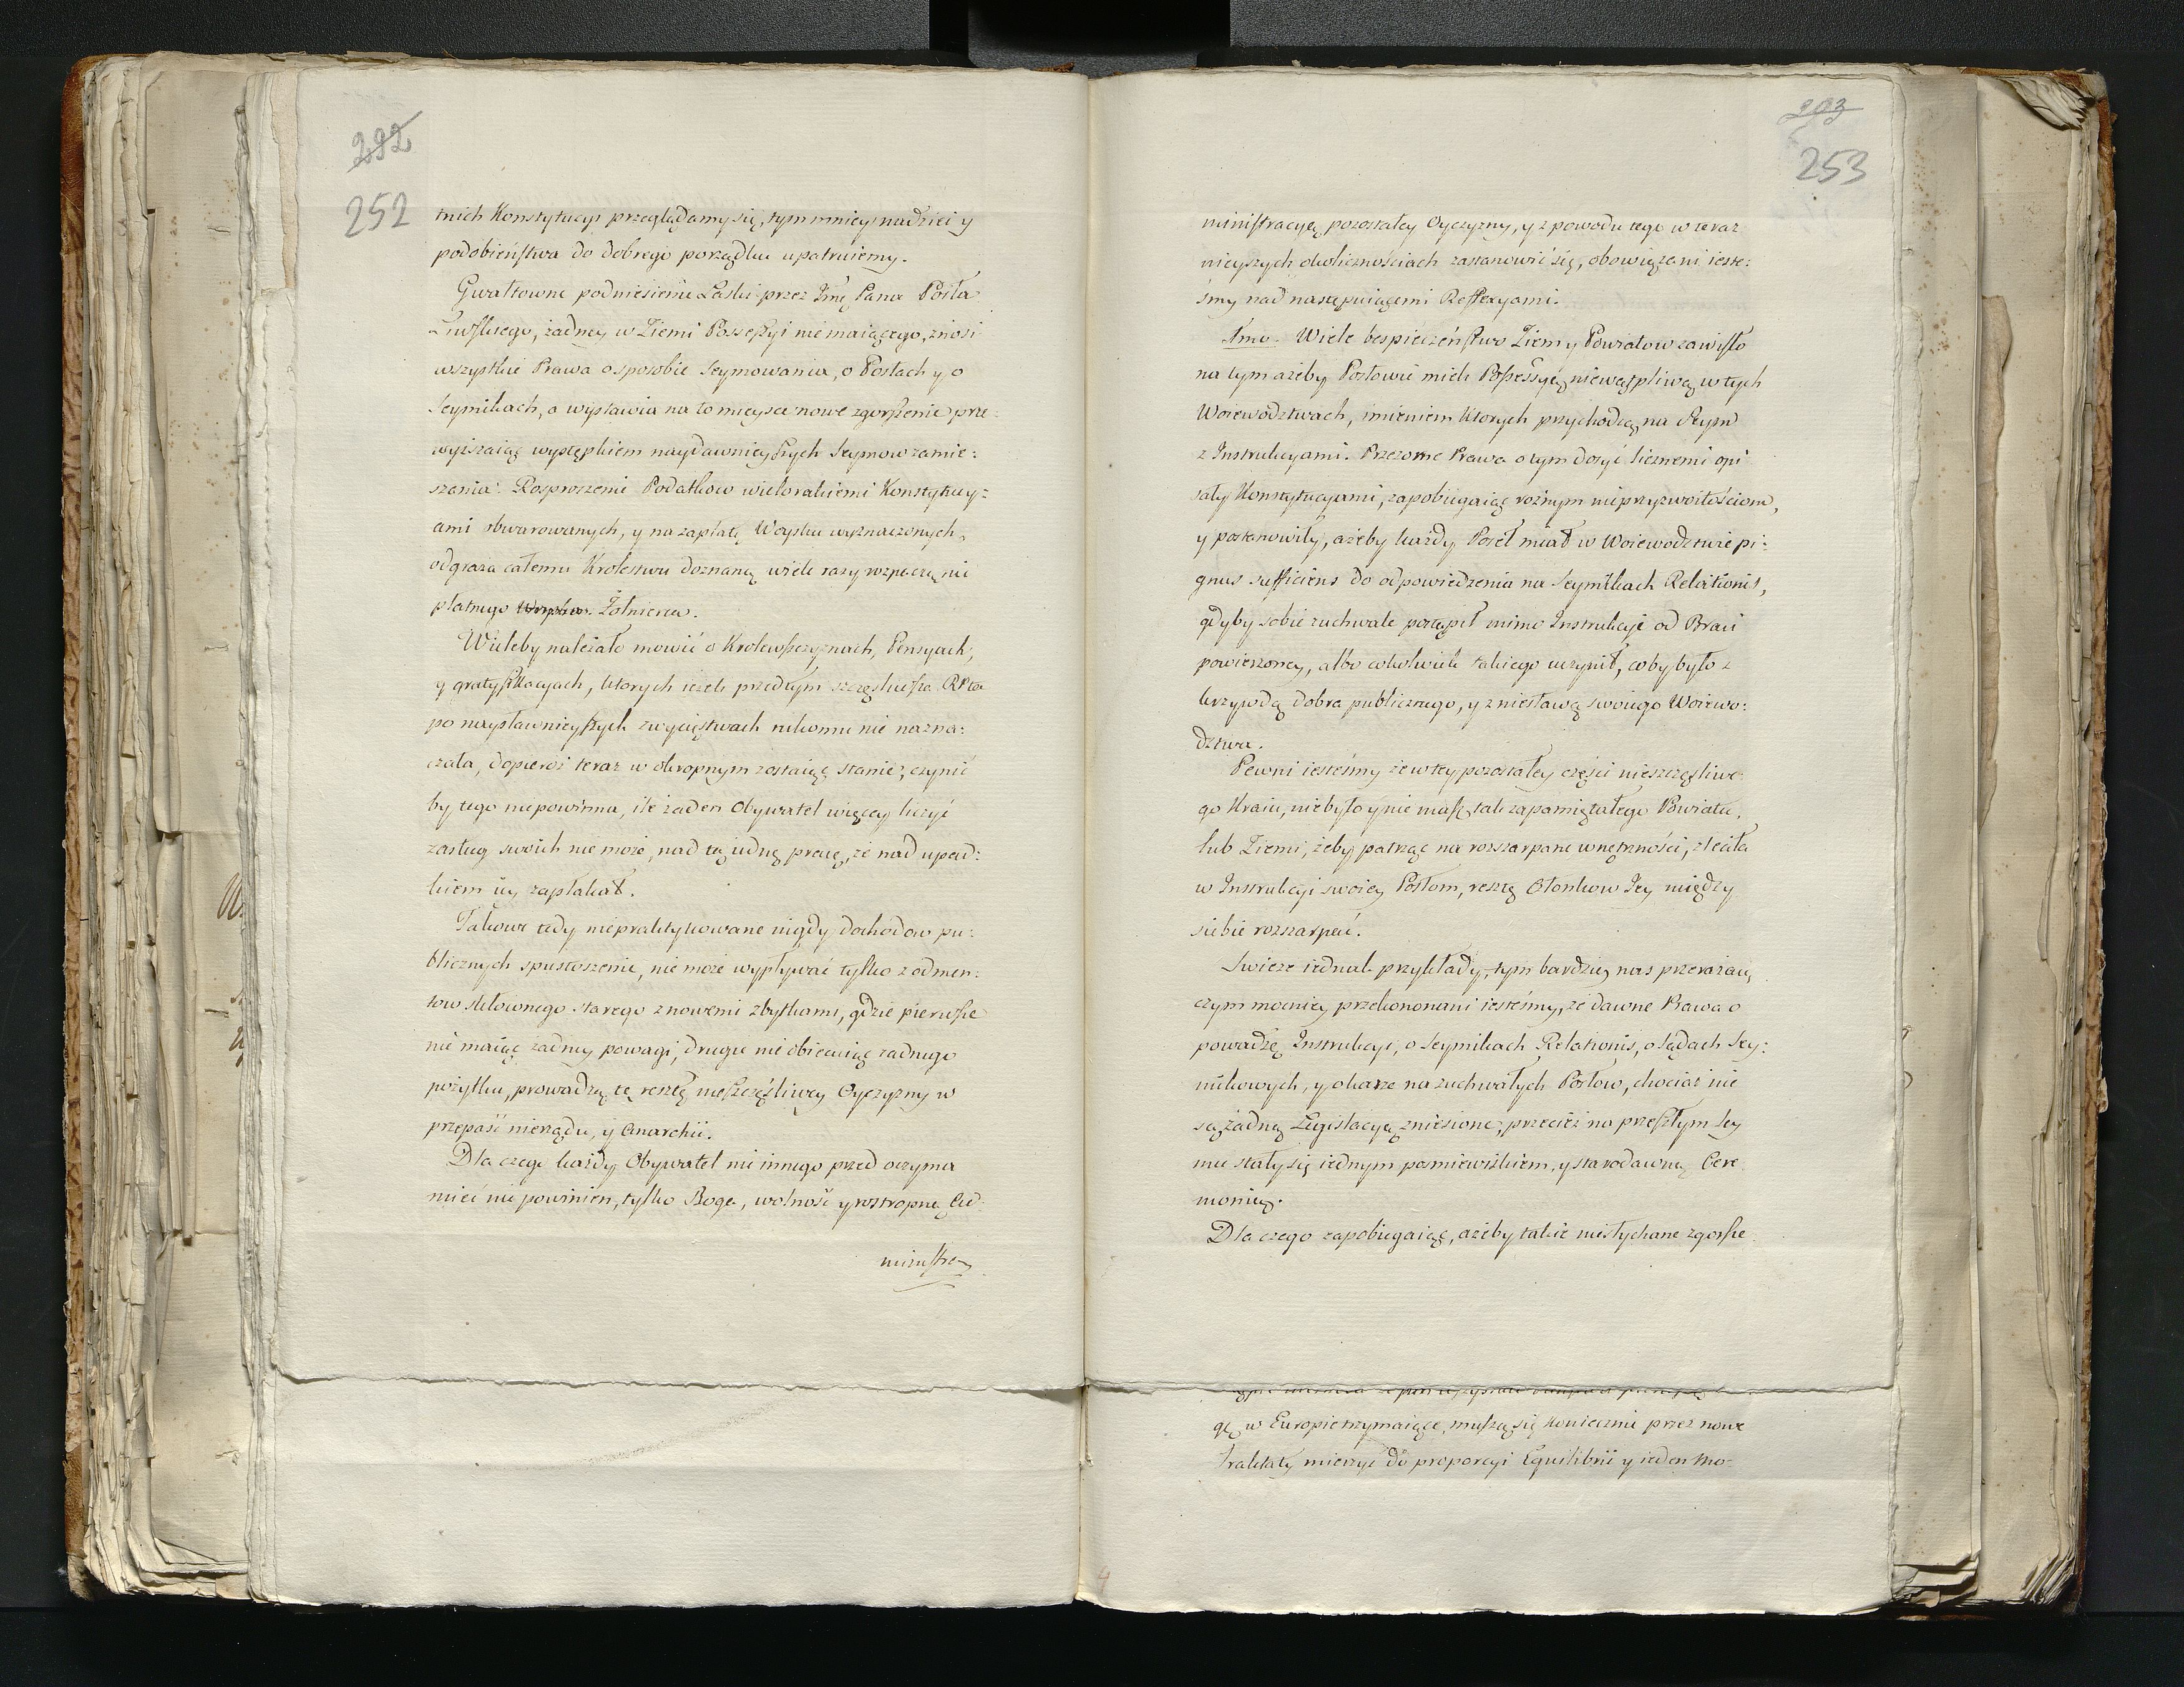 292
252
tnich Konstytucyi przeglądamy się, tym mniey nadziei y
podobieństwa do dobrego porządku upatruiemy.
Gwałtowne podniesienie Laski przez Jmę Pana Posła
żadney w Ziemi Possessyi nie maiącego, znosi
wszystkie Prawa o sposobie Seymowania, o Posłach y o
Seymikach, a wystawia na to mieysce nowe zgorszenie prze-
wyiszaiąc występkiem naydawnieyszych Seymow zamie:
szania. Rosproszenie Podatkow wielorakiemi Konstytucy:
ami obwarowanych, y na zapłatę Woyska wyznaczonych,
odgraża całemu Krolestwu doznaną wiele razy rozpaczą nie
płatnego Woyska Żołnierza.
Wieleby należało mowić o Krolewszczyznach, Pensyach,
y gratyfikacyach, ktorych ieżeli przedtym szczęśliwsza RPta
po naysławnieyszych zwycięstwach nikomu nie nazna:
czała, dopieroż teraz w okropnym zostaiąc stanie, czynić
by tego niepowinna, ile żaden Obywatel więcey liczyć
zasług swoich nie może, nad tę iedną pracę, że nad upad:
kiem iey zapłakał.
Takowe tedy niepraktykowane nigdy dochodow pu:
blicznych spustoszenie, nie może wypływać tylko z odmen:
tow skłoconego starego z nowemi zbytkami, gdzie pierwsze
nie maiąc żadney powagi, drugie nie obiecuiąc żadnego
pożytku, prowadzą tę resztę nieszczęśliwey Oyczyzny w
przepaść nierządu, y Anarchii.
Dla czego każdy Obywatel nic innego przed oczyma
mieć nie powinien, tylko Boga, wolność y rostropną Ad:
ministra
203
253
ministracyą pozostałey Oyczyzny, y z powodu tego w teraz
nieyszych okolicznościach zastanowić się, obowiązani ieste:
śmy nad następuiącemi Reflexyami.
1mo. Wiele bespieczeństwo Ziem y Powiatow zawisło
na tym ażeby Posłowie mieli Possessyą niewątpliwą w tych
Woiewodztwach, imieniem ktorych przychodzą na Seym
z Instrukcyami. Przezorne Prawa o tym dosyć licznemi opi
sały Konstytucyami, zapobiegaiąc rożnym nieprzyzwoitościom,
y postanowiły, ażeby każdy Poseł miał w Woiewodztwie pi:
gnus sufficiens do odpowiedzenia na Seymikach Relationis,
gdyby sobie zuchwale postąpił mimo Instrukcyi od Braci
powierzoney, albo cokolwiek takiego uczynił, coby było z
krzywdą dobra publicznego, y z niesławą swoiego Woiewo:
dztwa.
Pewni iesteśmy że w tey pozostałey części nieszczęśliwe
go Kraiu, niebyło y nie masz tak zapamiętałego Powiatu,
lub Ziemi, żeby patrząc na rozszarpane wnętrzności, zleciła
w Instrukcyi swoiey Posłom, resztę Członkow Jey między
siebie rozszarpać.
Swieże iednak przykłady, tym bardziey nas przerażaią
czym mocniey przekonani iesteśmy, że dawne Prawa o
powadze Instrukcyi, o Seymikach Relationis, o Sądach Sey:
mikowych, y o karze na zuchwałych Posłow, chociaż nie
są żadną Legislacyą zniesione, przecież na przeszłym Sey
mie stały się iednym posmiewiskiem, y starodawną Cere
monią.
Dla czego zapobiegaiąc, ażeby takie niesłychane zgorsze
gę w Europie trzymaiące, muszą się koniecznie przez nowe
Traktaty mierzyć do proporcyi Equilibrii y ieden Mo-